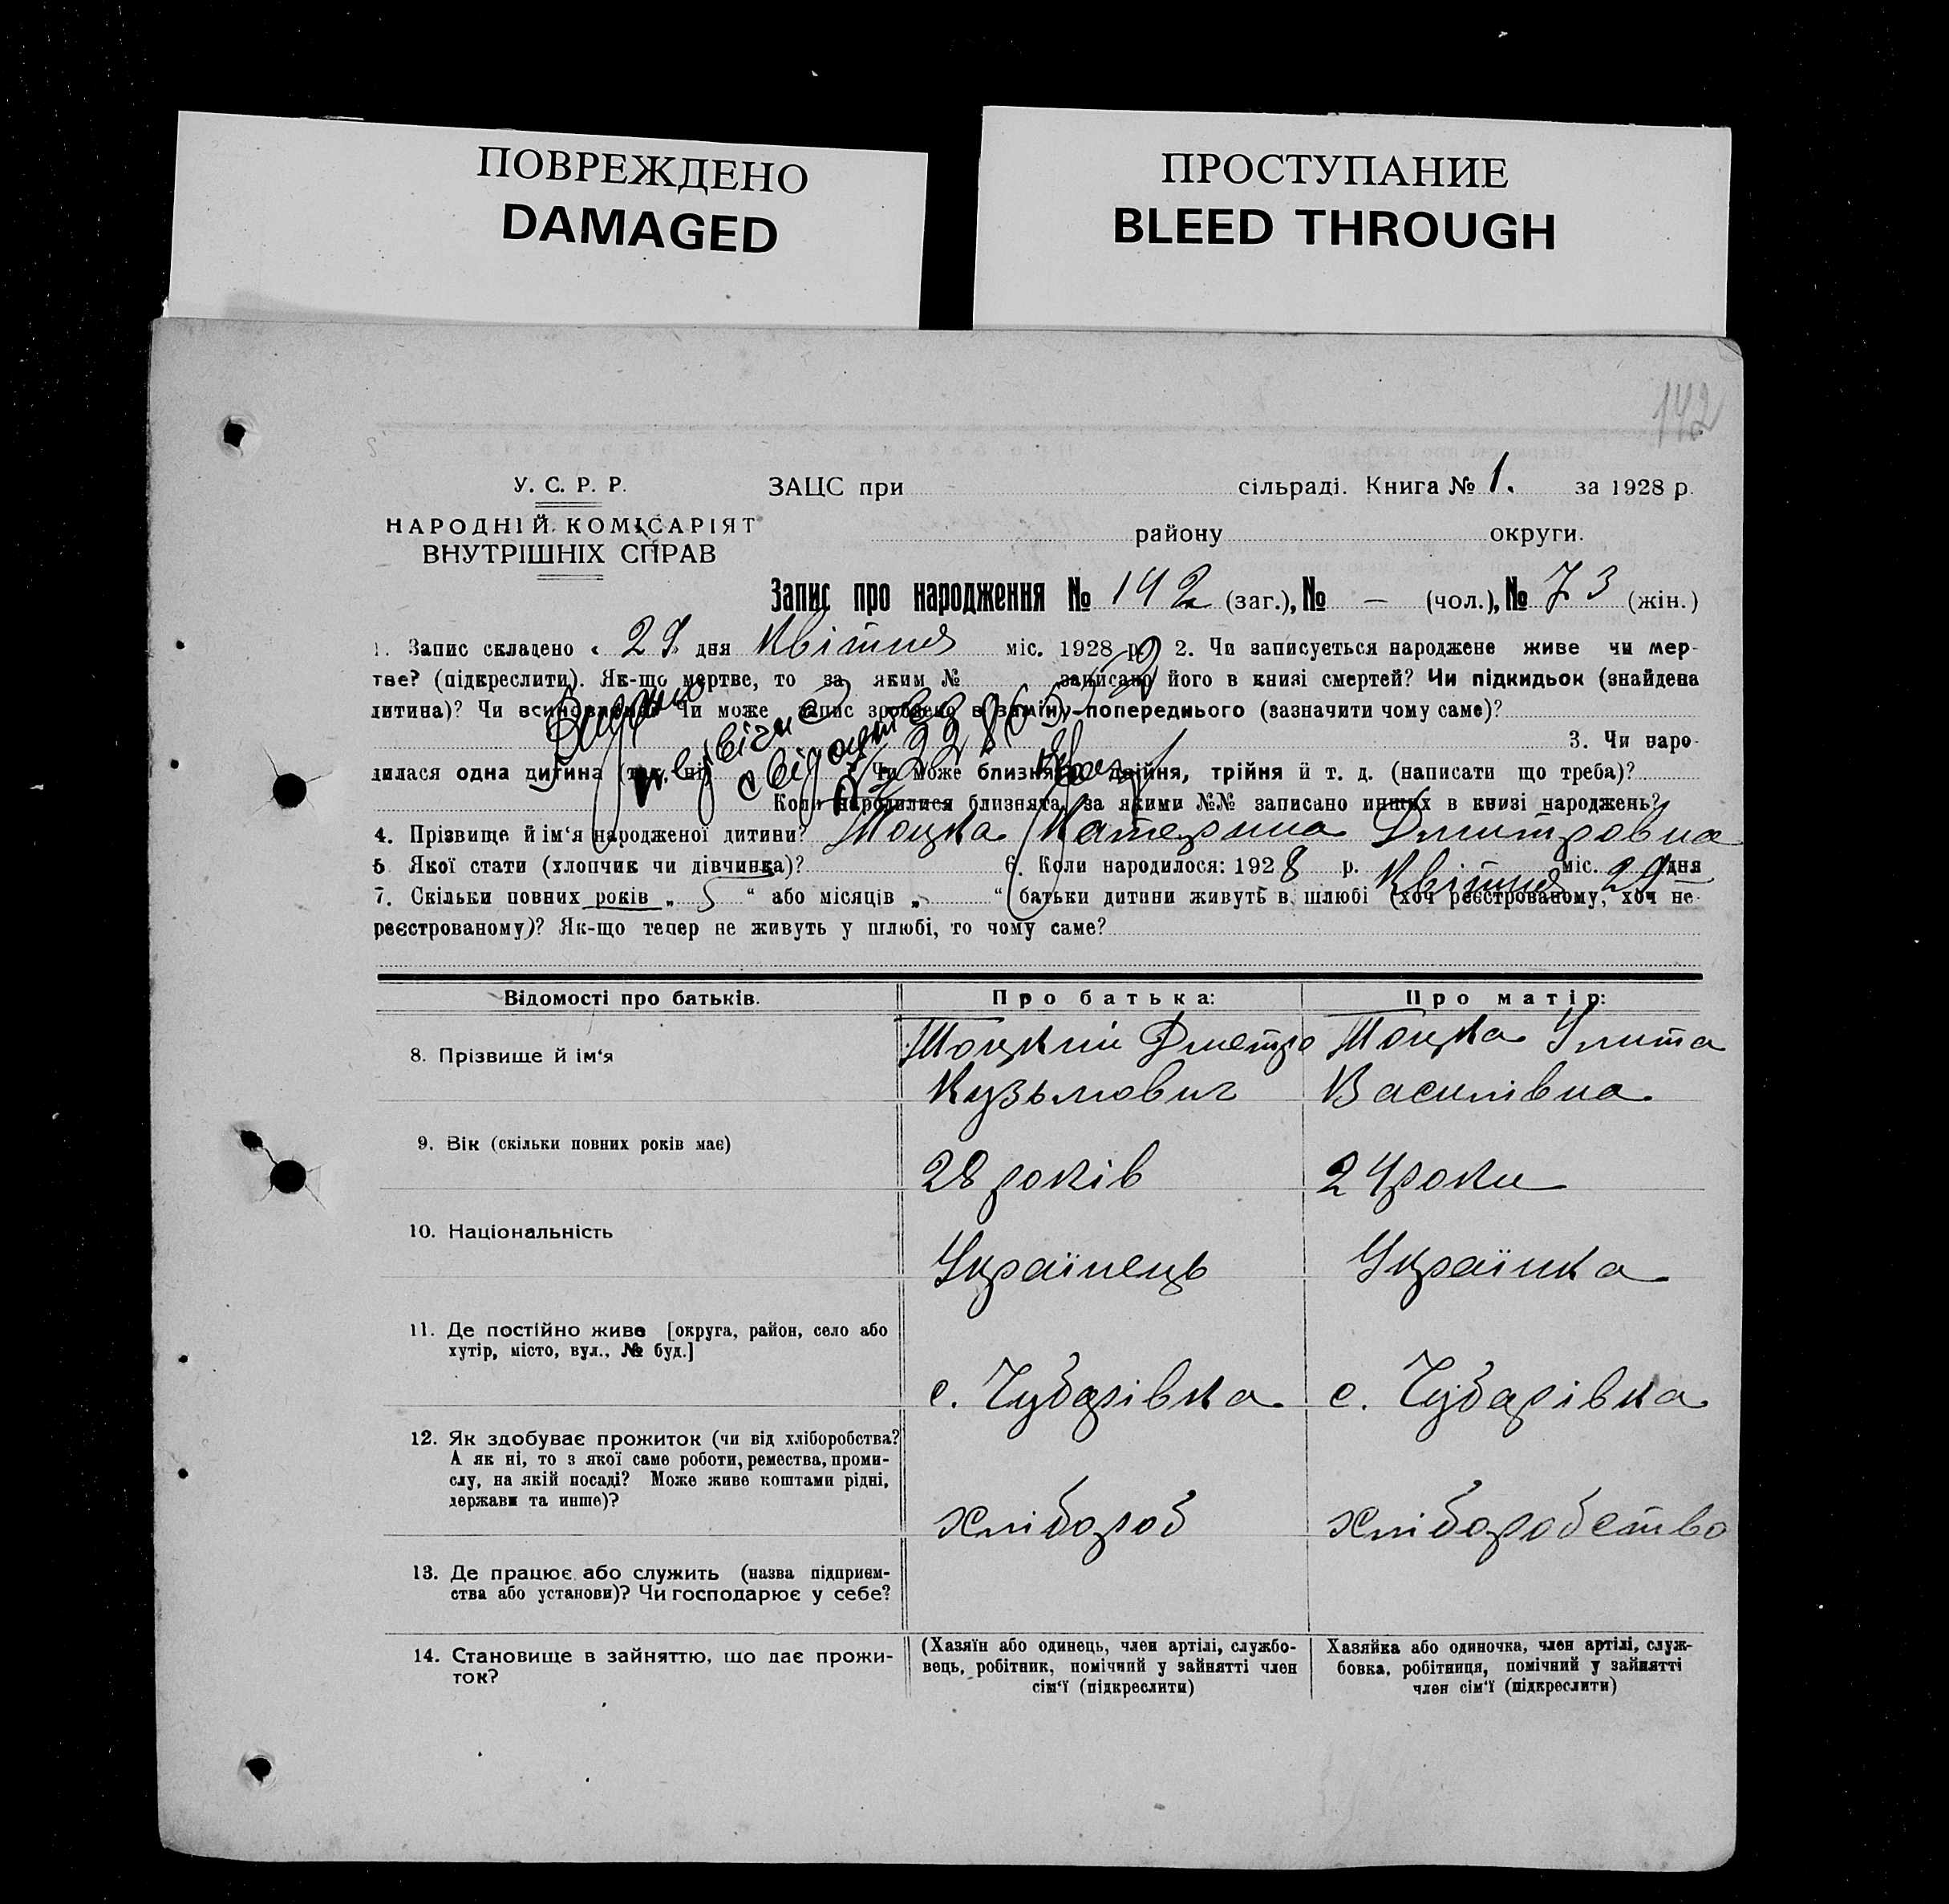 ПОВРЕЖДЕНО
DAMAGED
ПРОСТУПАНИЕ
BLEED THROUGH
142
У. С. Р. Р.
НАРОДНІЙ КОМІСАРІЯТ
ВНУТРІШНІХ СПРАВ
ЗАЦС при сільраді. Книга № 1. за 1928 р.
району округи.
Запис про народження № 142 (заг.), № — (чол.), № 73 (жін.)
1. Запис складено « 29 » дня Квітня міс. 1928 р. 2. Чи записується народжене живе чи мер-
тве? (підкреслити). Як-що мертве, то за яким № записано його в книзі смертей? Чи підкидьок (знайдена
дитина)? Чи всиновлена? Чи може запис зроблено в заміну попереднього (зазначити чому саме)?
Видано свідоцтво
3. Чи наро-
дилася одна дитина (так, ні) Чи може близнята, двійня, трійня й т. д. (написати що треба)?
Коли народилися близнята, за якими №№ записано инших в книзі народжень?
4. Прізвище й ім‘я народженої дитини? Тоцка Катерина Дмитровна
5 Якої стати (хлопчик чи дівчинка)? 6. Коли народилося: 1928 р. Квітня міс. дня
7. Скільки повних років „ 5 “ або місяців „ “ батьки дитини живуть в шлюбі (хоч реєстрованому, хоч не-
реєстрованому)? Як-що тепер не живуть у шлюбі, то чому саме?
Відомості про батьків. Про батька: Про матір:
8. Прізвище й ім‘я
Тоцкий Дметро
Кузьмович
Тоцка Улита
Василівна
9. Вік (скільки повних років має)
28 років
24 роки
10. Національність
Українець
Українка
11. Де постійно живе [округа, район, село або
хутір, місто, вул., № буд.]
с. Чубарівка
с. Чубарівка
12. Як здобуває прожиток (чи від хліборобства?
А як ні, то з якої саме роботи, ремества, проми-
слу, на якій посаді? Може живе коштами рідні,
держави та инше)?
хлібороб
хліборобство
13. Де працює або служить (назва підприєм-
ства або установи)? Чи господарює у себе?
14. Становище в зайняттю, що дає прожи-
ток?
(Хазяїн або одинець, член артілі, службо-
вець, робітник, помічний у зайнятті член
сім‘ї (підкреслити)
Хазяйка або одиночка, член артілі, служ-
бовка, робітниця, помічний у зайнятті
член сім‘ї (підкреслити)